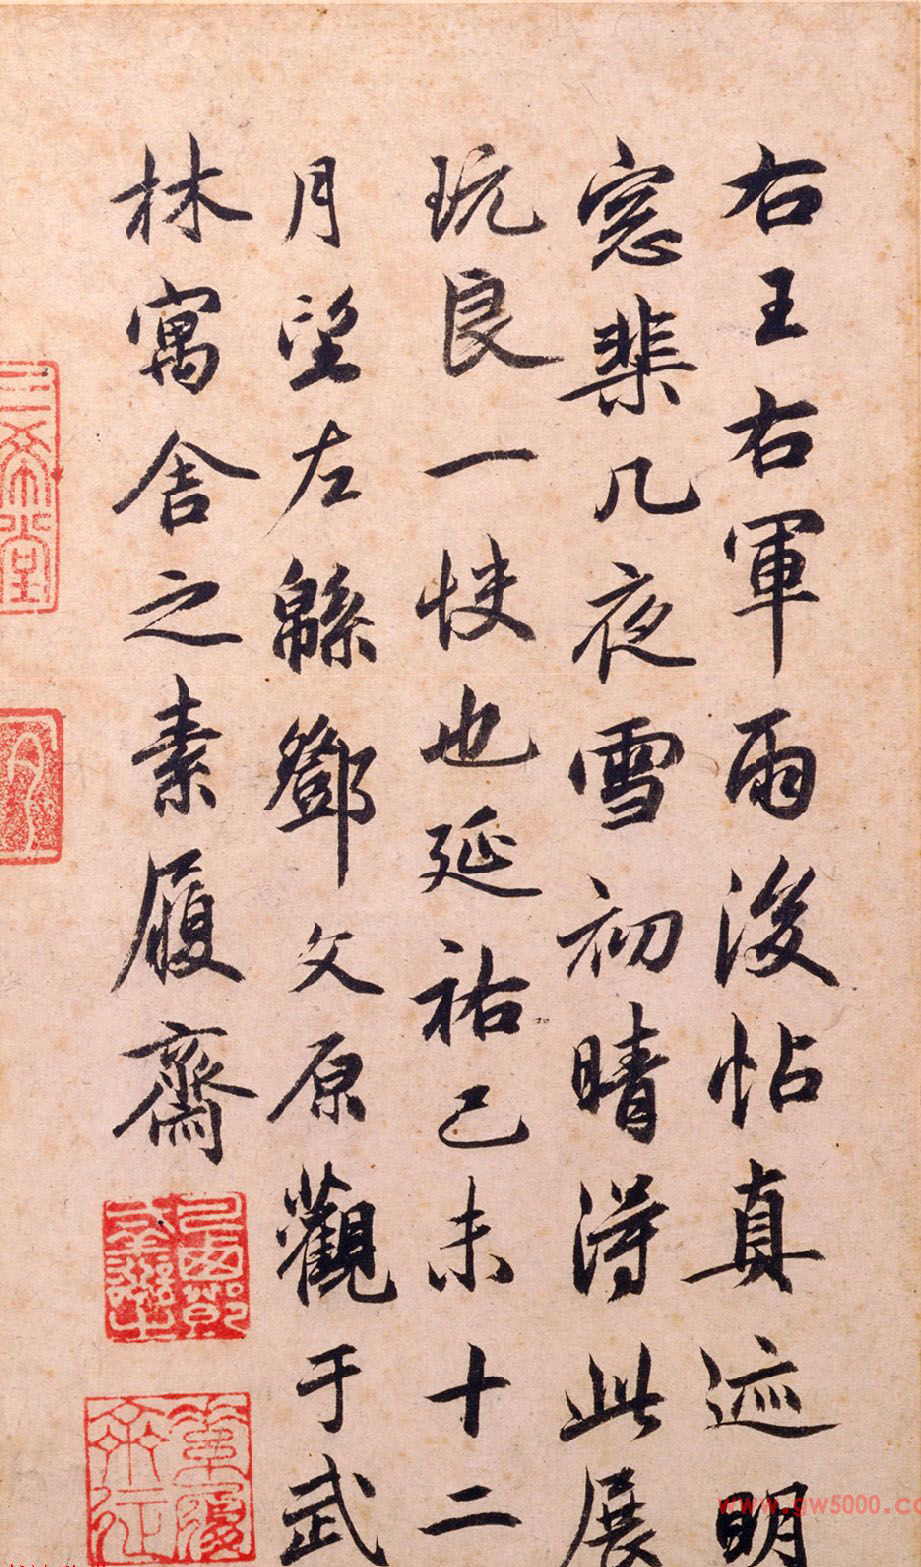 右王右軍雨後帖真迹明
窓棐几夜雪初晴得此展
玩良一快也延祐己未十二
月望左緜鄧文原觀于武
林寓舍之素履齋
三希堂
www.gw5000.c